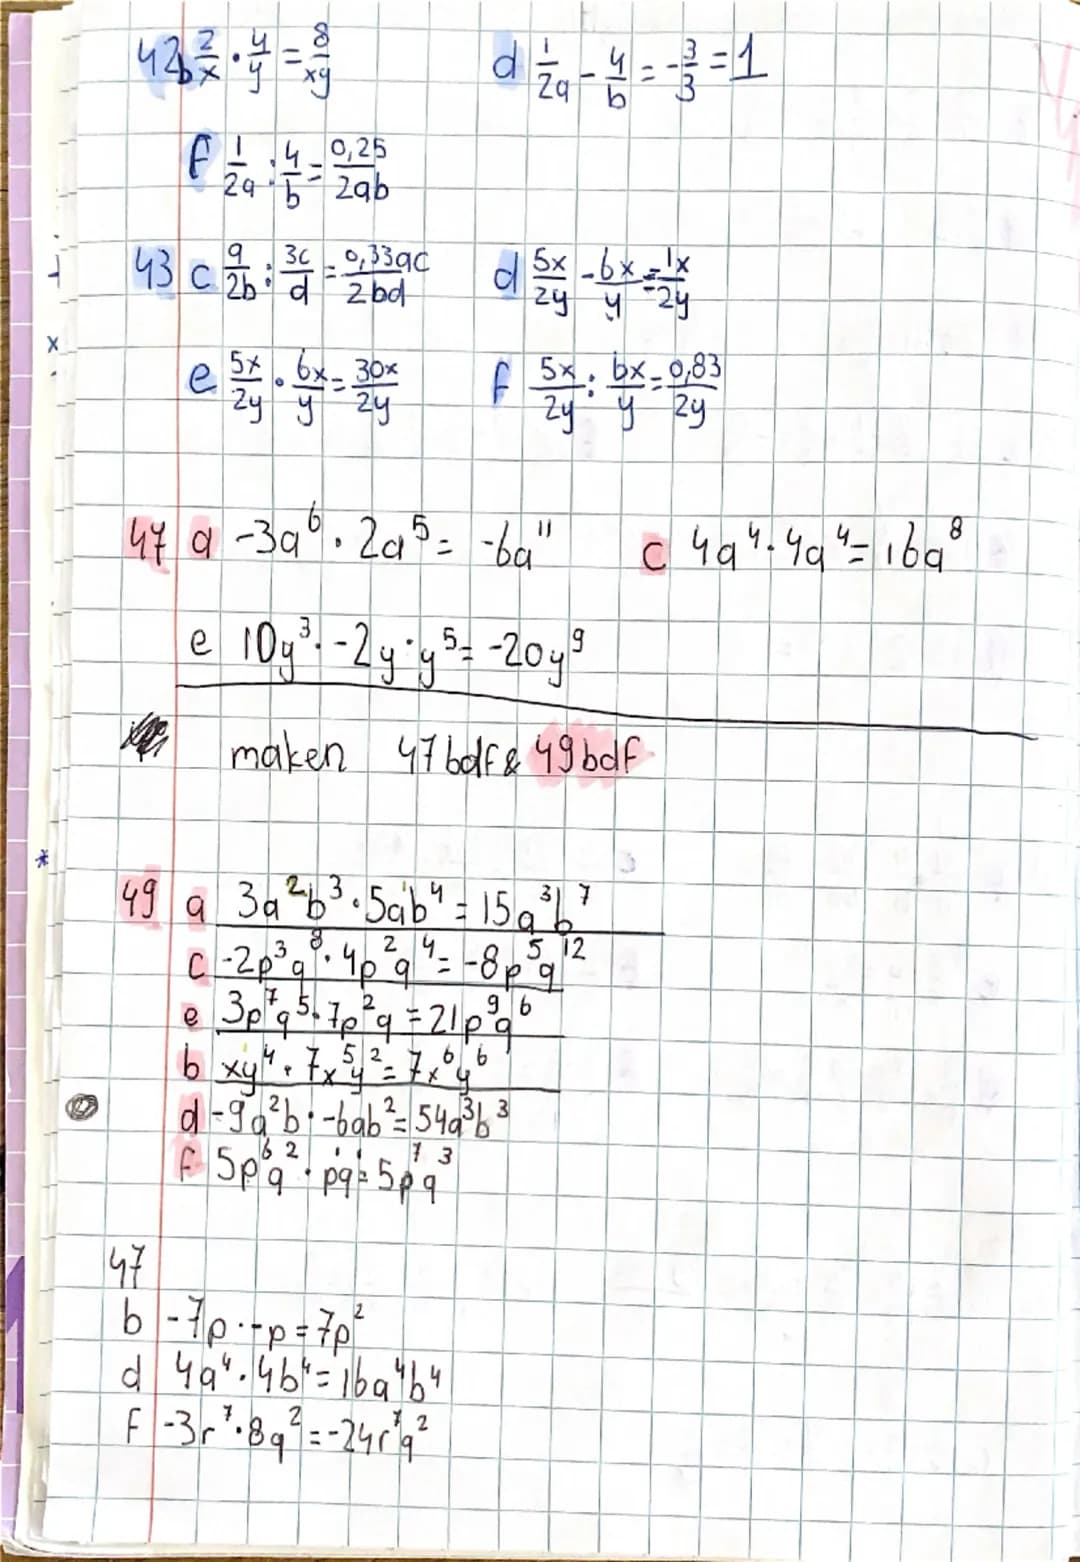 42b 2/x · 4/y = 8/xy    d 1/2a - 4/b = -3/3 = 1
f 1/2a : 4/b = 0,25/2ab
43 c a/2b : 3c/d = 0,33ac/2bd    d 5x/2y - 6x/y = -1x/-2y
e 5x/2y · 6x/y = 30x/2y    f 5x/2y : 6x/y = 0,83/2y
47 a -3a⁶ · 2a⁵ = -6a¹¹    c 4a⁴ · 4a⁴ = 16a⁸
e 10y³ · -2y · y⁵ = -20y⁹
maken 47bdf & 49bdf
49 a 3a²b³ · 5ab⁴ = 15a³b⁷
c -2p³q⁸ · 4p²q⁴ = -8p⁵q¹²
e 3p⁷q⁵ · 7p²q = 21p⁹q⁶
b xy⁴ · 7x⁵y² = 7x⁶y⁶
d -9a²b · -6ab² = 54a³b³
f 5p⁶q² · p¹q¹ = 5p⁷q³
47
b -7p · -p = 7p²
d 4a⁴ · 4b⁴ = 16a⁴b⁴
f -3r⁷ · 8q² = -24r⁷q²